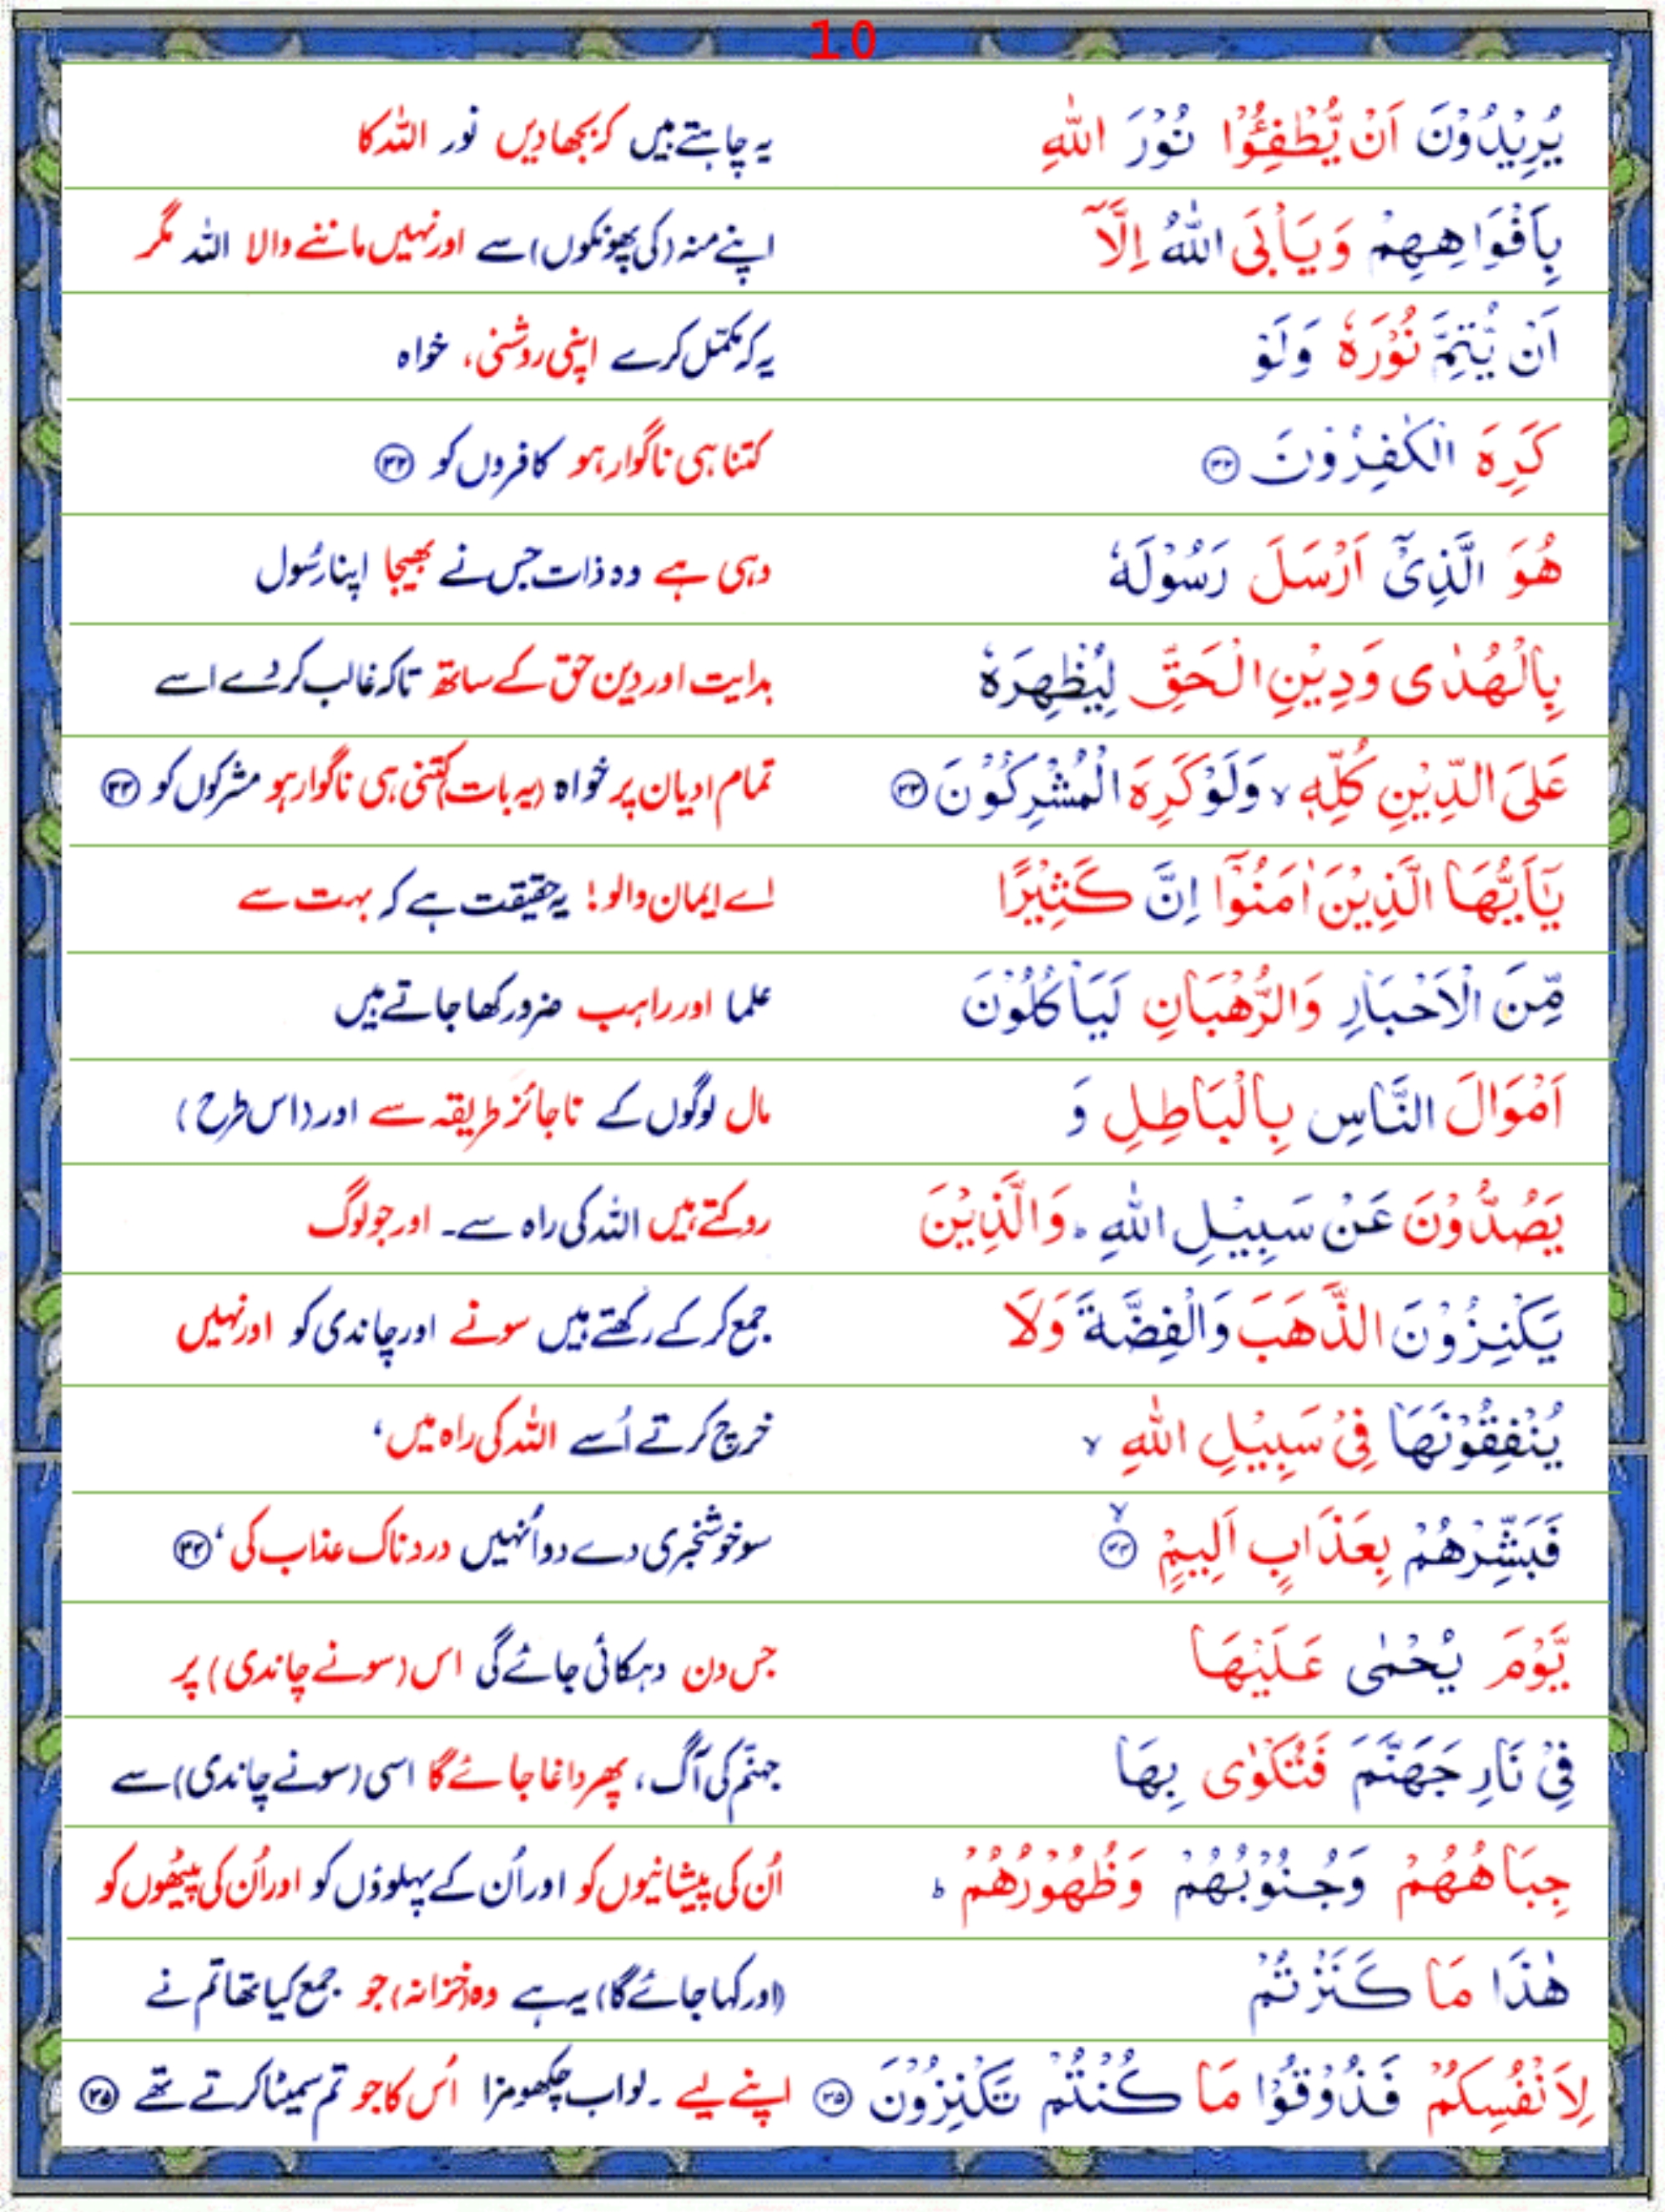 10
يُرِيْدُوْنَ اَنْ يُّطْفِـُٔوْا نُوْرَ اللّٰهِ یہ چاہتے ہیں کہ بجھا دیں نور اللہ کا
بِاَفْوَاهِهِمْ وَيَاْبَى اللّٰهُ اِلَّاۤ اپنے منہ (کی پھونکوں) سے اور نہیں ماننے والا اللہ مگر
اَنْ يُّتِمَّ نُوْرَهٗ وَلَوْ یہ کہ مکمّل کرے اپنی روشنی، خواہ
كَرِهَ الْكٰفِرُوْنَ ۳۲ کتنا ہی ناگوار ہو کافروں کو ۳۲
هُوَ الَّذِىْۤ اَرْسَلَ رَسُوْلَهٗ وہی ہے وہ ذات جس نے بھیجا اپنا رسُول
بِالْهُدٰى وَدِيْنِ الْحَقِّ لِيُظْهِرَهٗ ہدایت اور دینِ حق کے ساتھ تاکہ غالب کر دے اسے
عَلَى الدِّيْنِ كُلِّهٖ ۙ وَلَوْ كَرِهَ الْمُشْرِكُوْنَ ۳۳ تمام ادیان پر خواہ (یہ بات) کتنی ہی ناگوار ہو مشرکوں کو ۳۳
يٰۤاَيُّهَا الَّذِيْنَ اٰمَنُوْۤا اِنَّ كَثِيْرًا اے ایمان والو! یہ حقیقت ہے کہ بہت سے
مِّنَ الْاَحْبَارِ وَالرُّهْبَانِ لَيَاْكُلُوْنَ علما اور راہب ضرور کھا جاتے ہیں
اَمْوَالَ النَّاسِ بِالْبَاطِلِ وَ مال لوگوں کے ناجائز طریقہ سے اور (اس طرح)
يَصُدُّوْنَ عَنْ سَبِيْلِ اللّٰهِ ؕ وَالَّذِيْنَ روکتے ہیں اللہ کی راہ سے۔ اور جو لوگ
يَكْنِزُوْنَ الذَّهَبَ وَالْفِضَّةَ وَلَا جمع کر کے رکھتے ہیں سونے اور چاندی کو اور نہیں
يُنْفِقُوْنَهَا فِىْ سَبِيْلِ اللّٰهِ ۙ خرچ کرتے اُسے اللہ کی راہ میں‘
فَبَشِّرْهُمْ بِعَذَابٍ اَلِيْمٍ ۙ ۳۴ سو خوشخبری دے دو اُنہیں دردناک عذاب کی‘ ۳۴
يَّوْمَ يُحْمٰى عَلَيْهَا جس دن دہکائی جائے گی اس (سونے چاندی) پر
فِىْ نَارِ جَهَنَّمَ فَتُكْوٰى بِهَا جہنّم کی آگ، پھر داغا جائے گا اسی (سونے چاندی) سے
جِبَاهُهُمْ وَجُنُوْبُهُمْ وَظُهُوْرُهُمْ ؕ اُن کی پیشانیوں کو اور اُن کے پہلوؤں کو اور اُن کی پیٹھوں کو
هٰذَا مَا كَنَزْتُمْ (اور کہا جائے گا) یہ ہے وہ (خزانہ) جو جمع کیا تھا تم نے
لِاَنْفُسِكُمْ فَذُوْقُوْا مَا كُنْتُمْ تَكْنِزُوْنَ ۳۵ اپنے لیے ۔ لو اب چکھو مزا اُس کا جو تم سمیٹا کرتے تھے ۳۵